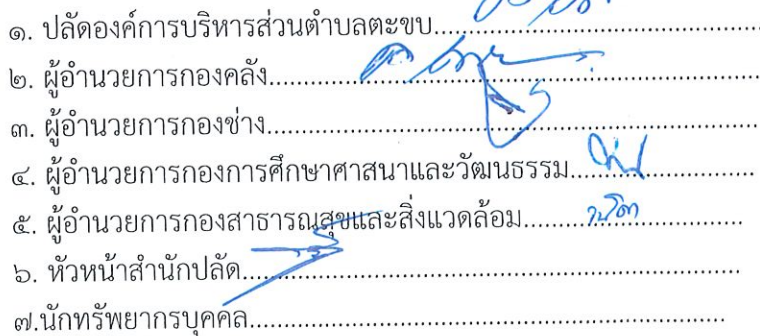 ๑. ปลัดองค์การบริหารส่วนตำบลตะขบ........................................
๒. ผู้อำนวยการกองคลัง........................................
๓. ผู้อำนวยการกองช่าง........................................
๔. ผู้อำนวยการกองการศึกษาศาสนาและวัฒนธรรม........................................
๕. ผู้อำนวยการกองสาธารณสุขและสิ่งแวดล้อม........................................
๖. หัวหน้าสำนักปลัด........................................
๗.นักทรัพยากรบุคคล........................................